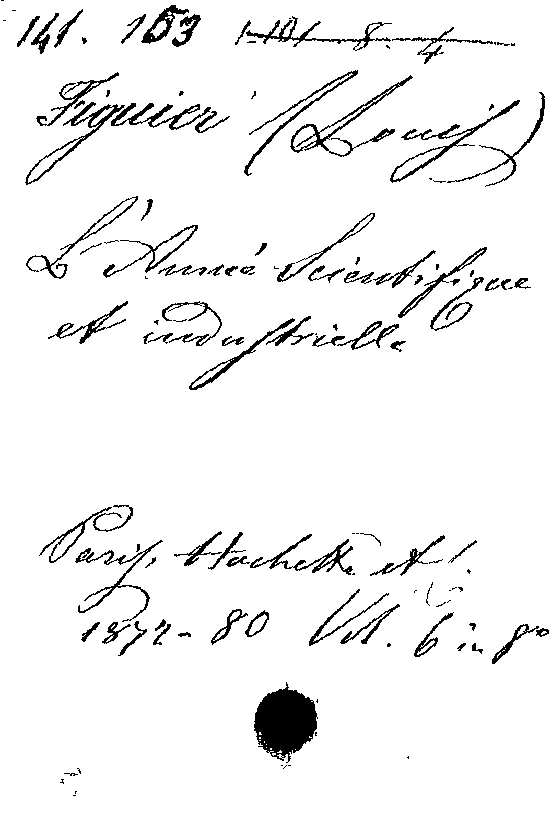 141. 153 1-101 8. 4
Figuier (Louis)
L'Année Scientifique
et industrielle
Paris, Hachette et
1872-80 Vol. 6 in 8º